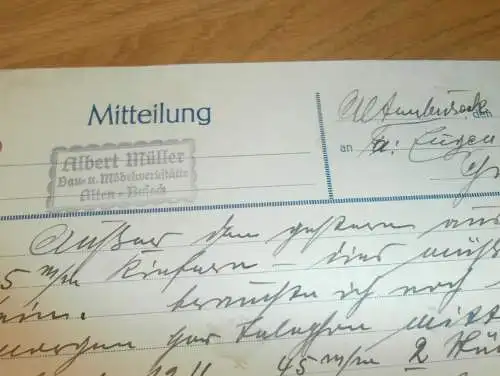 Mitteilung
Albert Müller
Bau- u. Möbelwerkstätte
Alten-Buseck
Altenbuseck den
an Fa: Eugen
Außer den gestern aus
5 m/m Kiefern – dies müß
brauchte ich noch
morgen per Telephon mitt
45 m/m 2